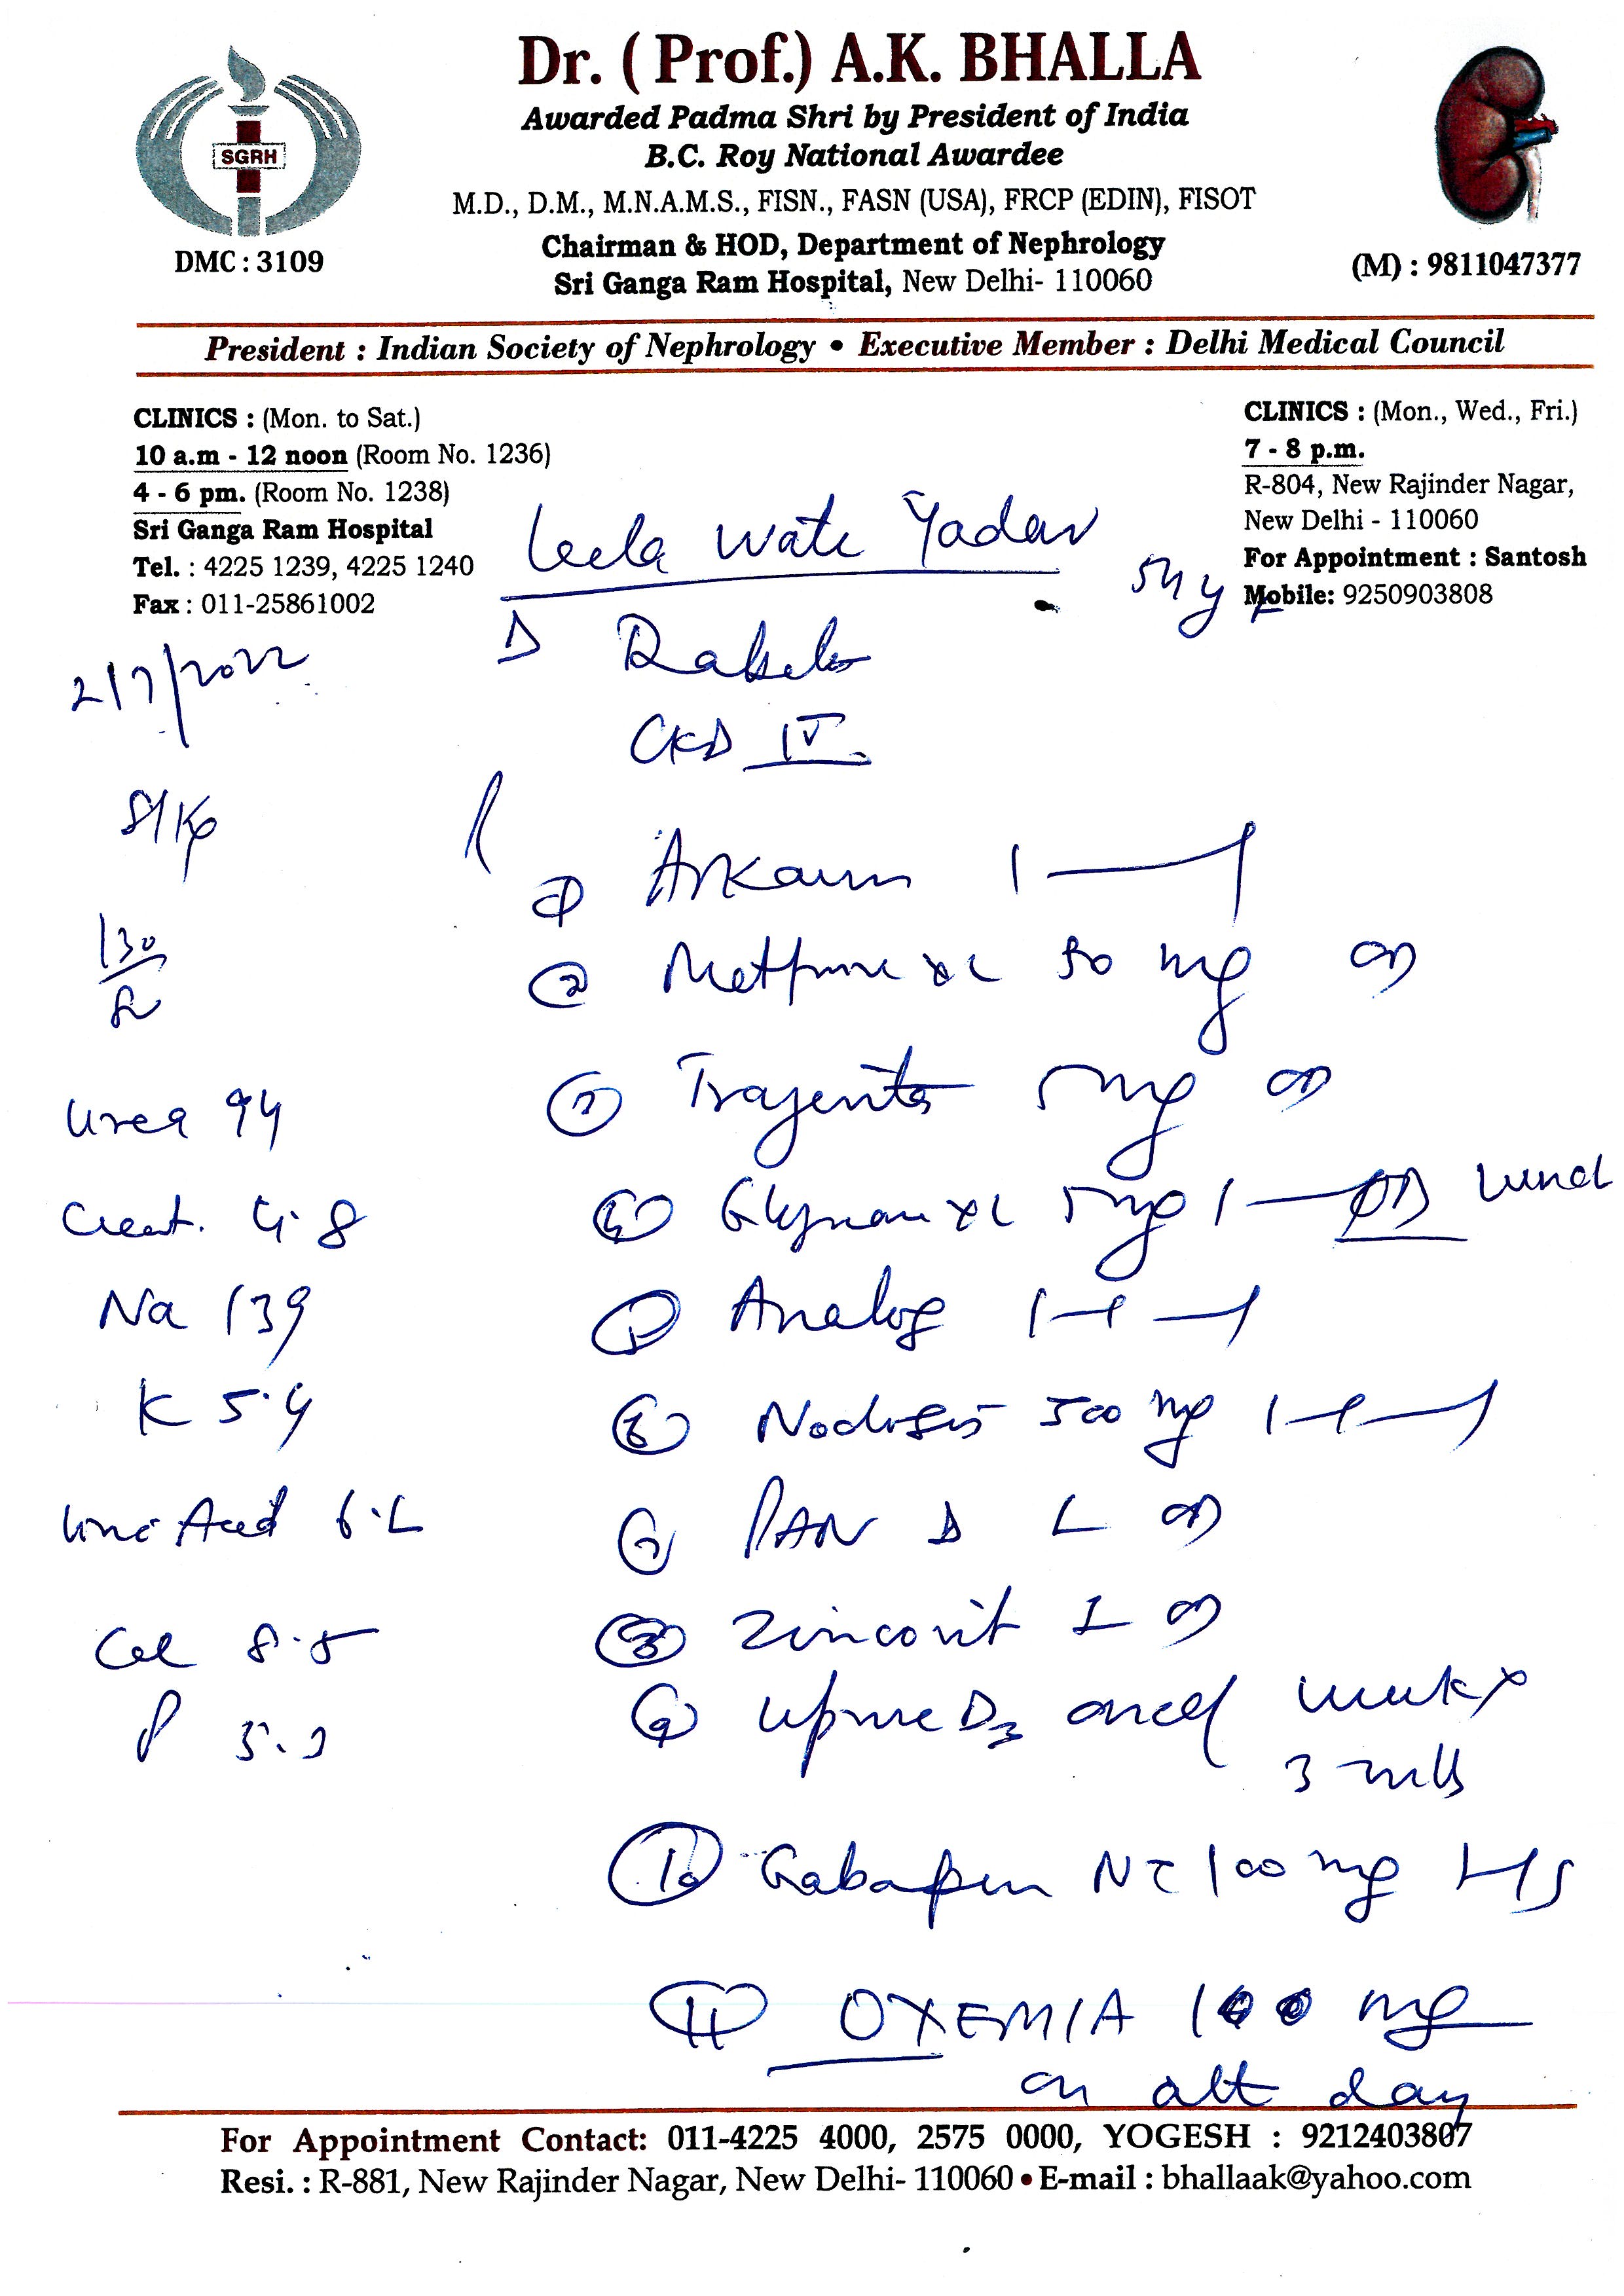 Dr. ( Prof.) A.K. BHALLA
Awarded Padma Shri by President of India
B.C. Roy National Awardee
M.D., D.M., M.N.A.M.S., FISN., FASN (USA), FRCP (EDIN), FISOT
Chairman & HOD, Department of Nephrology
Sri Ganga Ram Hospital, New Delhi- 110060
SGRH
DMC : 3109
(M) : 9811047377
President : Indian Society of Nephrology • Executive Member : Delhi Medical Council
CLINICS : (Mon. to Sat.)
10 a.m - 12 noon (Room No. 1236)
4 - 6 pm. (Room No. 1238)
Sri Ganga Ram Hospital
Tel. : 4225 1239, 4225 1240
Fax : 011-25861002
CLINICS : (Mon., Wed., Fri.)
7 - 8 p.m.
R-804, New Rajinder Nagar,
New Delhi - 110060
For Appointment : Santosh
Mobile: 9250903808
Leela Wati Yadav
2/7/2022
CKD IV
81 Kg
130
Urea 94
Creat. 4.8
Na 139
K 5.4
Uric Acid
Cal 8.5
P
① Arkamin 1 — 1
② XL 50 mg OD
③ Trajenta 5 mg OD
④ XL 5 mg 1 — OD lunch
⑤ Analog 1 — 1 — 1
⑥ Nodosis 500 mg 1 — 1 — 1
⑦ PAN D OD
⑧ Zincovit 1 OD
⑨ Uprise D3 once week x
3 mths
⑩ Gabapin NT 100 mg HS
⑪ OXEMIA 100 mg
on alt day
For Appointment Contact: 011-4225 4000, 2575 0000, YOGESH : 9212403807
Resi. : R-881, New Rajinder Nagar, New Delhi- 110060 • E-mail : bhallaak@yahoo.com